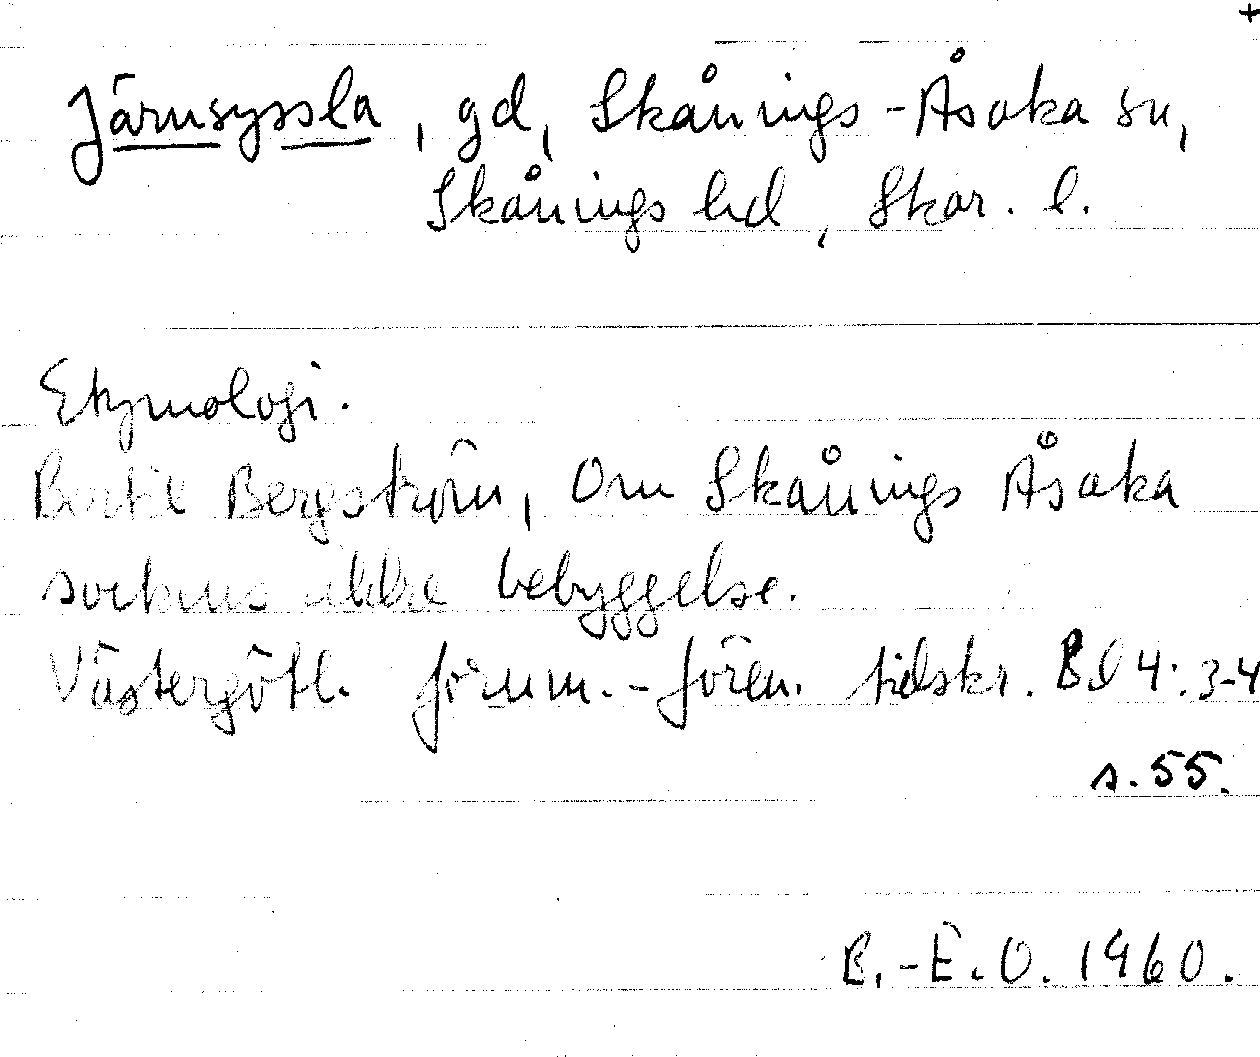 +
Järnsyssla, gd, Skånings-Åsaka sn,
Skånings hd, Skar. l.
Etymologi.
Bertil Bergström, Om Skånings Åsaka
sockens äldre bebyggelse.
Västergötl. fornm.-fören. tidskr. Bd 4:3-4
s. 55.
B.-E. O. 1960.